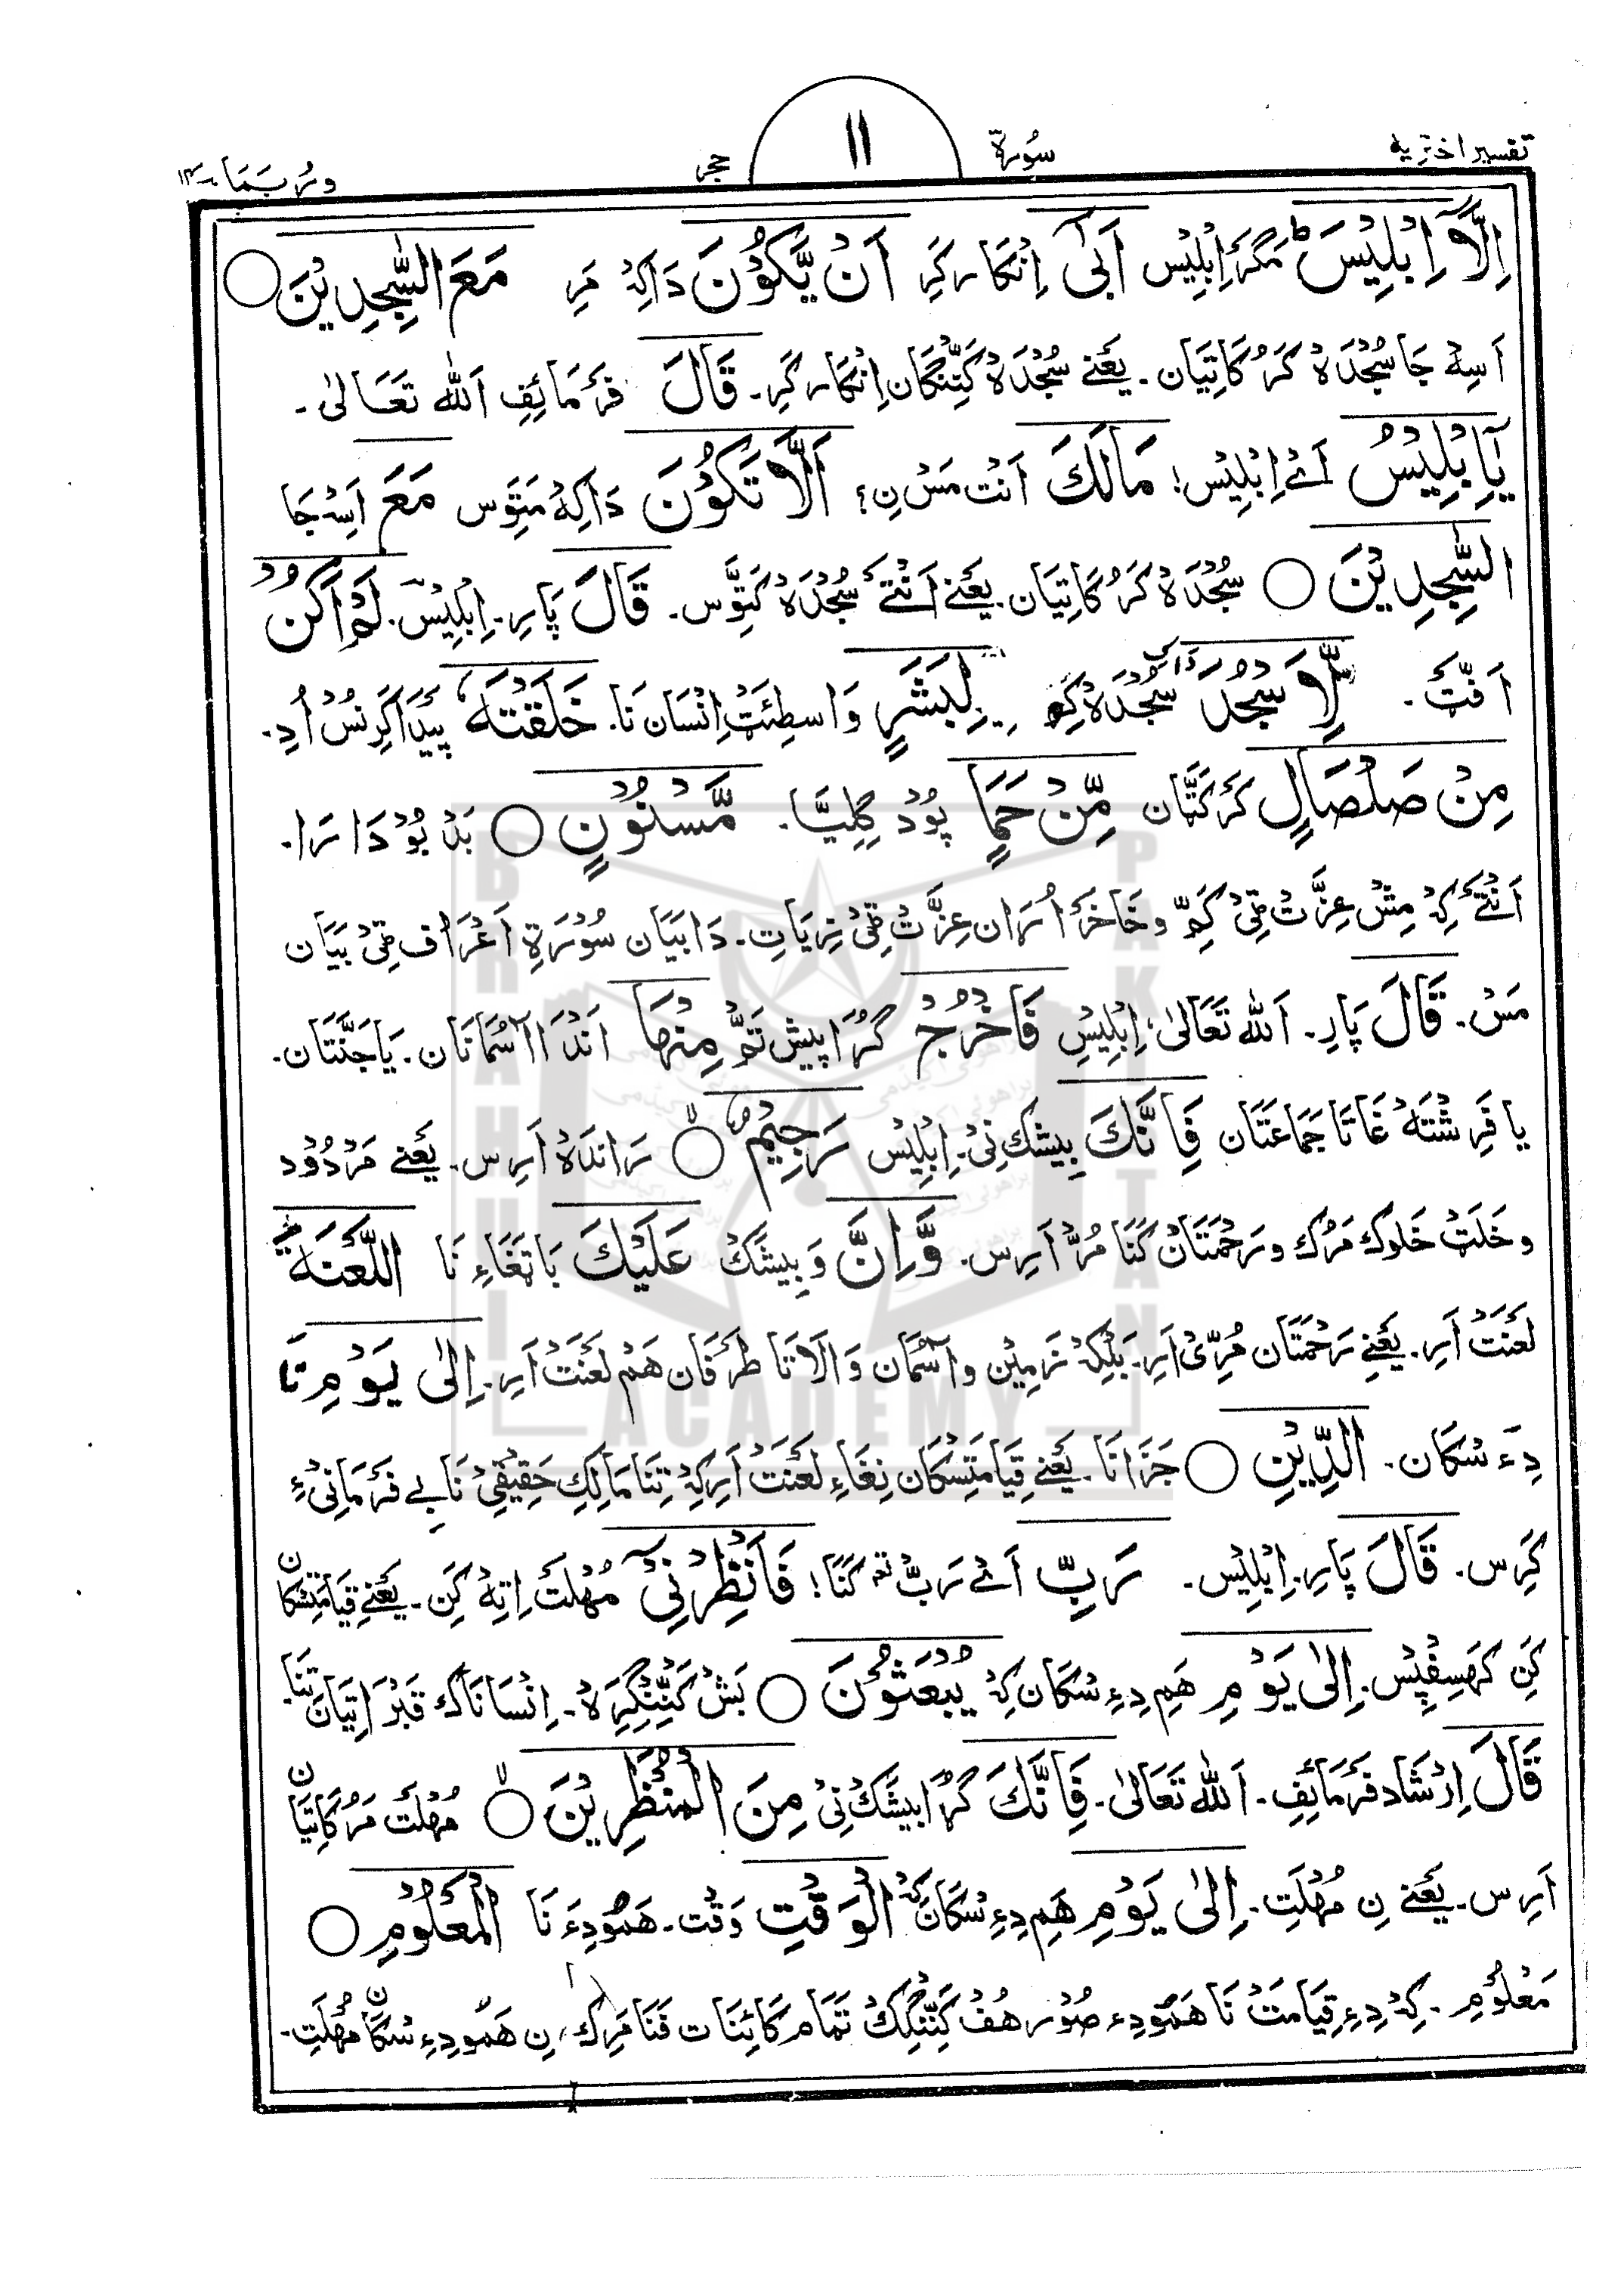 تفسیر اختریه سُورة ١١ حجر وَرُبَمَا-١٤
اِلَّآ اِبْلِیْسَ ط مَگر اِبْلِیْس اَبٰىٓ اِنْکَار کَرِ اَنْ یَّکُوْنَ دَاکِہ مَرِ مَعَ السّٰجِدِیْنَ ○
اَسِہ جَا سُجْدَہْ کَرُکَاتِیَان۔ یَعْنے سُجْدَہْ کَنِّنْگَان اِنْکَار کَرِ۔ قَالَ فَرْمَائِفِ اَللّٰہ تَعَالٰی۔
یٰٓاِبْلِیْسُ اَئے اِبْلِیْس! مَالَکَ اَنْت مَسْ نِ؟ اَلَّا تَکُوْنَ دَاکِہ مَتَوِّس مَعَ اَسِہ جَا
السّٰجِدِیْنَ ○ سُجْدَہْ کَرُکَاتِیَان۔ یَعْنے اَنْتَئے سُجْدَہْ کَتَوِّس۔ قَالَ پَارِ۔ اِبْلِیْس۔ لَمْ اَکُنْ
اَفَّٹ۔ لِّاَسْجُدَ سُجْدَہْ کِہ لِبَشَرٍ وَاسطِئَٹ اِنْسَان نَا۔ خَلَقْتَہٗ پَیْدَا کَرِنُسْ اُدِ۔
مِنْ صَلْصَالٍ کَرَکَتَّان مِّنْ حَمَاٍ پُوْد گِلِیَّا۔ مَّسْنُوْنٍ ○ بَدْ بُوْدَارَا۔
اَنْتَئے کِہ مِشْ عِزَّتْ ٹِیْ کَمّ وخَاخَر اُرَان عِزَّتْ ٹِیْ زِیَاتِ۔ دَا بَیَان سُوْرَۃِ اَعْرَاف ٹِیْ بَیَان
مَسْ۔ قَالَ پَارِ۔ اَللّٰہ تَعَالٰی، اِبْلِیْسِ فَاخْرُجْ گُرَا پیْش تَمّ مِنْهَا اَنْدَا آسْمَانَان۔ یَا جَنَّتَان۔
یا فَرِشْتَہ غَاتَا جَمَاعَتَان فَاِنَّکَ بِیشک نِیْ۔ اِبْلِیْس رَجِیْمٌ ○ رَانْدَہْ اَرِس۔ یَعْنے مَرْدُوْد
وخَلَٹْ خَلوک مَرُک ورَحْمَتَانْ کَنَا مُرّ اَرِس۔ وَّاِنَّ وَ بِیشَکْ عَلَیْکَ بَاتِغَاءِ نَا اللَّعْنَۃَ
لَعْنَتْ اَرِ۔ یَعْنے رَحْمَتَان مُرِّیْ اَرِ۔ بَلْکِہ زَمِیْن وآسْمَان وَالَاتَا طَرَفَان هَمْ لَعْنَتْ اَرِ۔ اِلٰی یَوْمِ تَا
دِءَ سْکَان۔ الدِّیْنِ ○ جَزَا نَا۔ یَعْنے قِیَامَتِسْکَان نِغَاءِ لَعْنَتْ اَرِ کِہ تِنَا مَالِکِ حَقِیْقِیْ نَا بے فَرْمَانِیْءِ
کَرِس۔ قَالَ پَارِ۔ اِبْلِیْس۔ رَبِّ اَئے رَبّ کَنَا! فَاَنْظِرْنِیْٓ مُهْلَت اِتِہْ کَنِ۔ یَعْنے قِیَامَتِسْکَان
کَنِ کَهسِفِپس۔ اِلٰی یَوْمِ هَمِ دِءِ سْکَان کِہ یُبْعَثُوْنَ ○ بَشْ کَنِّنْگِرَہْ۔ اِنْسَانَاک قَبْرَاتِیَان تِنَا۔
قَالَ اِرْشَاد فَرْمَائِفِ۔ اَللّٰہ تَعَالٰی۔ فَاِنَّکَ گُرَا بِیشَکْ نِیْ مِنَ الْمُنْظَرِیْنَ ○ مُهْلَت مَرُکَاتِیَان
اَرِس۔ یَعْنے نِ مُهْلَتِ۔ اِلٰی یَوْمِ هَمِ دِءِ سْکَان کِہ الْوَقْتِ وَقْت۔ هَمُوْ دِءَ نَا الْمَعْلُوْمِ ○
مَعْلُوْمِ۔ کِہ دِءِ قِیَامَتْ نَا هَمُوْ دِءِ صُوْر هُفْ کَنِّنْگِکْ تَمَام کَائِنَات فَنَا مَرِک، نِ هَمُوْ دِءِ سْکَان مُهْلَتِ۔
BRAHUI ACADEMY PAKISTAN